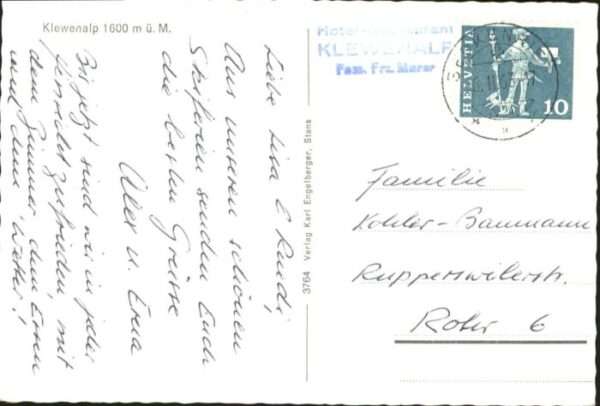 Klewenalp 1600 m ü. M.
Liebe Lisa & Ruedi,
Aus unseren schönen
Skiferien senden Euch
die besten Grüsse
u. Erna
Bis jetzt sind wir in jeder
Hinsicht zufrieden, mit
dem Zimmer, dem Essen
und dem Wetter!
3764 Verlag Karl Engelberger, Stans
KLEWENALP
Fam. Frz. Murer
HELVETIA
10
Familie
Kohler-Baumann
Rupperswilerstr.
Rohr 6